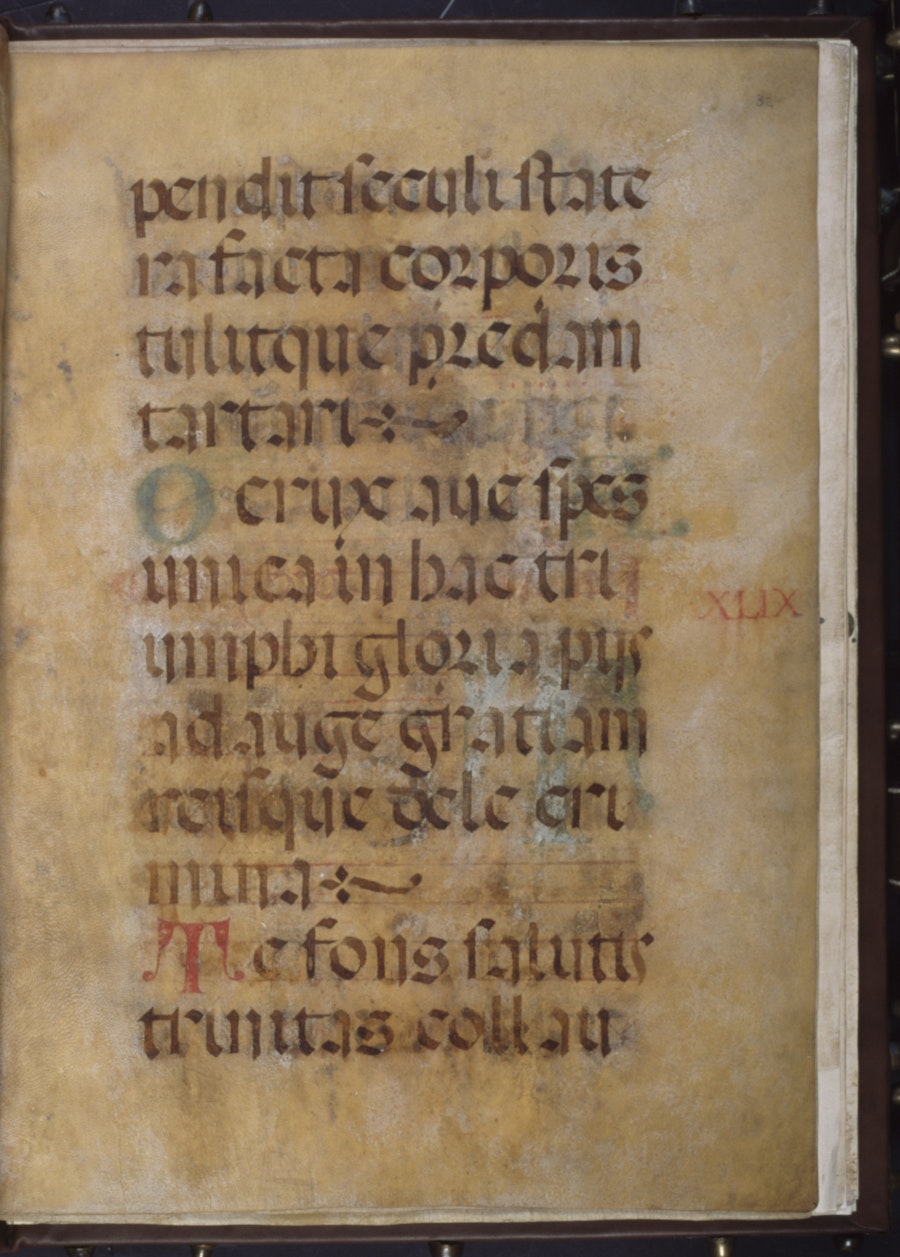 pendit seculi state
ra facta corporis
tulitque predam
tartari
O crux ave spes
unica in hac tri
umphi gloria piis
adauge gratiam
reisque dele cri
mina
XLIX
Te fons salutis
trinitas collau